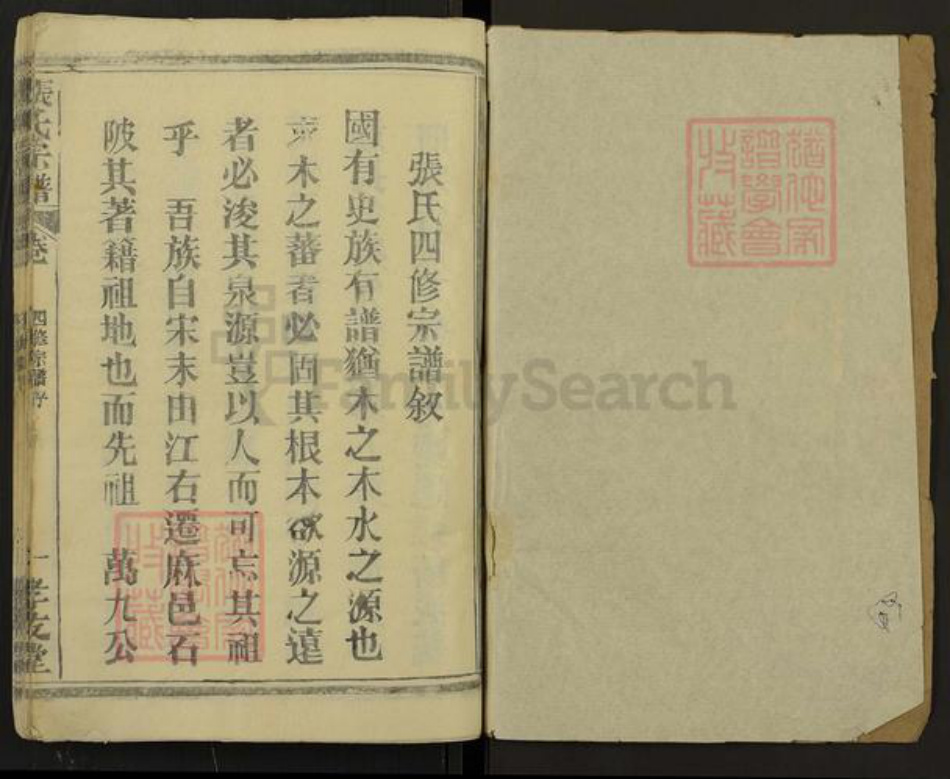 張氏四修宗譜敘
國有史族有譜猶木之本水之源也
求木之蕃者必固其根本欲源之遠
者必浚其泉源豈以人而可忘其祖
乎 吾族自宋末由江右遷麻邑石
陂其著籍祖地也而先祖 萬九公
張氏宗譜 卷一 四修宗譜序 孝友堂
FamilySearch